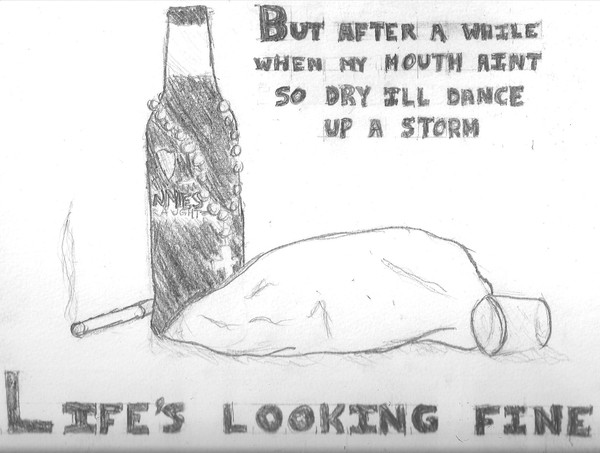 BUT AFTER A WHILE
WHEN MY MOUTH AINT
SO DRY ILL DANCE
UP A STORM
LIFE'S LOOKING FINE